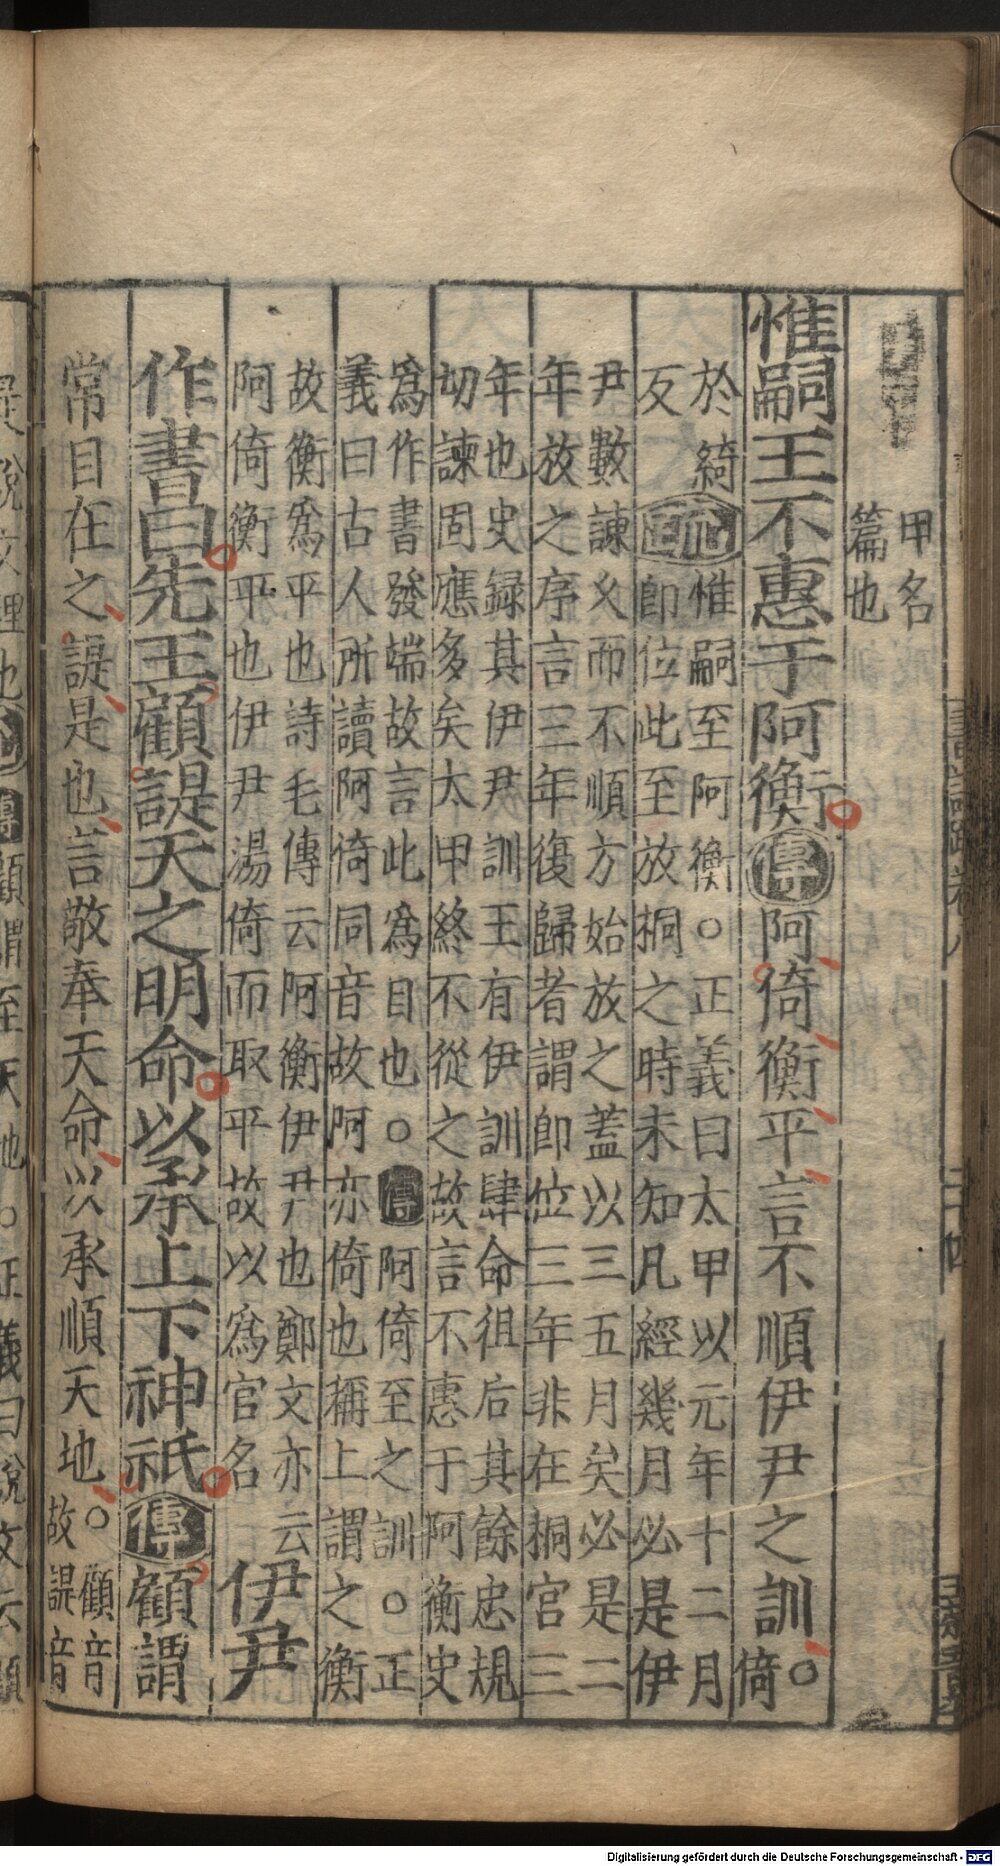 甲名
篇也
惟嗣王不惠于阿衡傳阿倚衡平言不順伊尹之訓。倚
於綺疏惟嗣至阿衡○正義曰太甲以元年十二月
反即位此至放桐之時未知凡經幾月必是伊
尹數諫久而不順方始放之蓋以三五月矣必是二
年放之序言三年復歸者謂即位三年非在桐宮三
年也史録其伊尹訓王有伊訓肆命徂后其餘忠規
切諫固應多矣太甲終不從之故言不惠于阿衡史
爲作書發端故言此爲目也○傳阿倚至之訓○正
義曰古人所讀阿倚同音故阿亦倚也稱上謂之衡
故衡爲平也詩毛傳云阿衡伊尹也鄭文亦云
阿倚衡平也伊尹湯倚而取平故以爲官名
伊尹
作書曰先王顧諟天之明命以承上下神祇傳顧謂
常目在之諟是也言敬奉天命以承順天地○顧音
故諟音
傳顧謂至天地○正義曰說文云顧
Digitalisierung gefördert durch die Deutsche Forschungsgemeinschaft - DFG